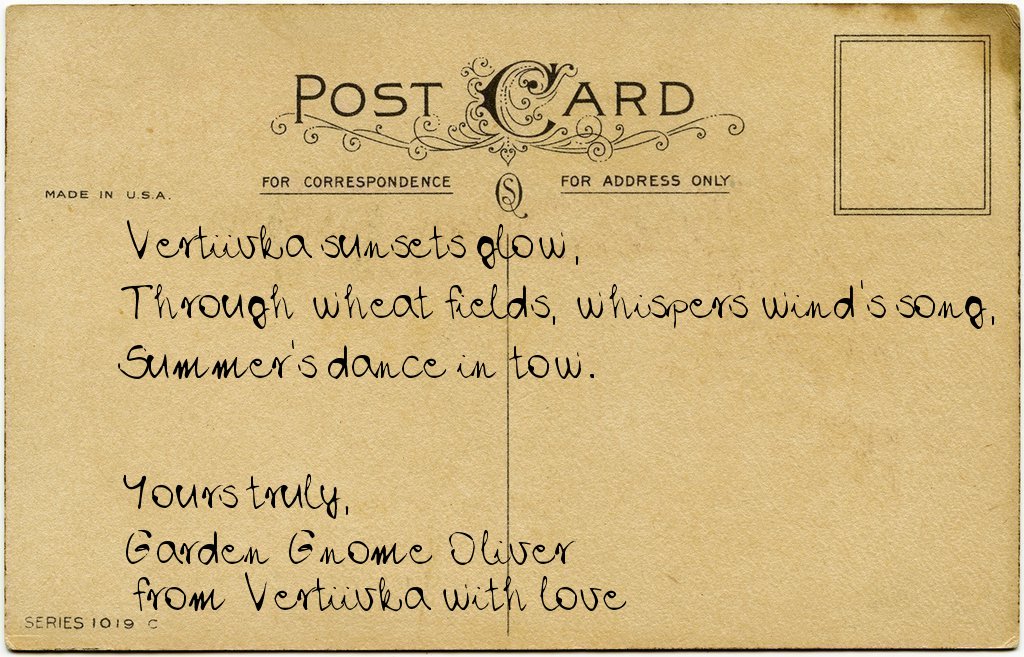 POST CARD
FOR CORRESPONDENCE
FOR ADDRESS ONLY
MADE IN U.S.A.
Vertiivka sunsets glow,
Through wheat fields, whispers wind's song,
Summer's dance in tow.
Yours truly,
Garden Gnome Oliver
from Vertiivka with love
SERIES 1019 C